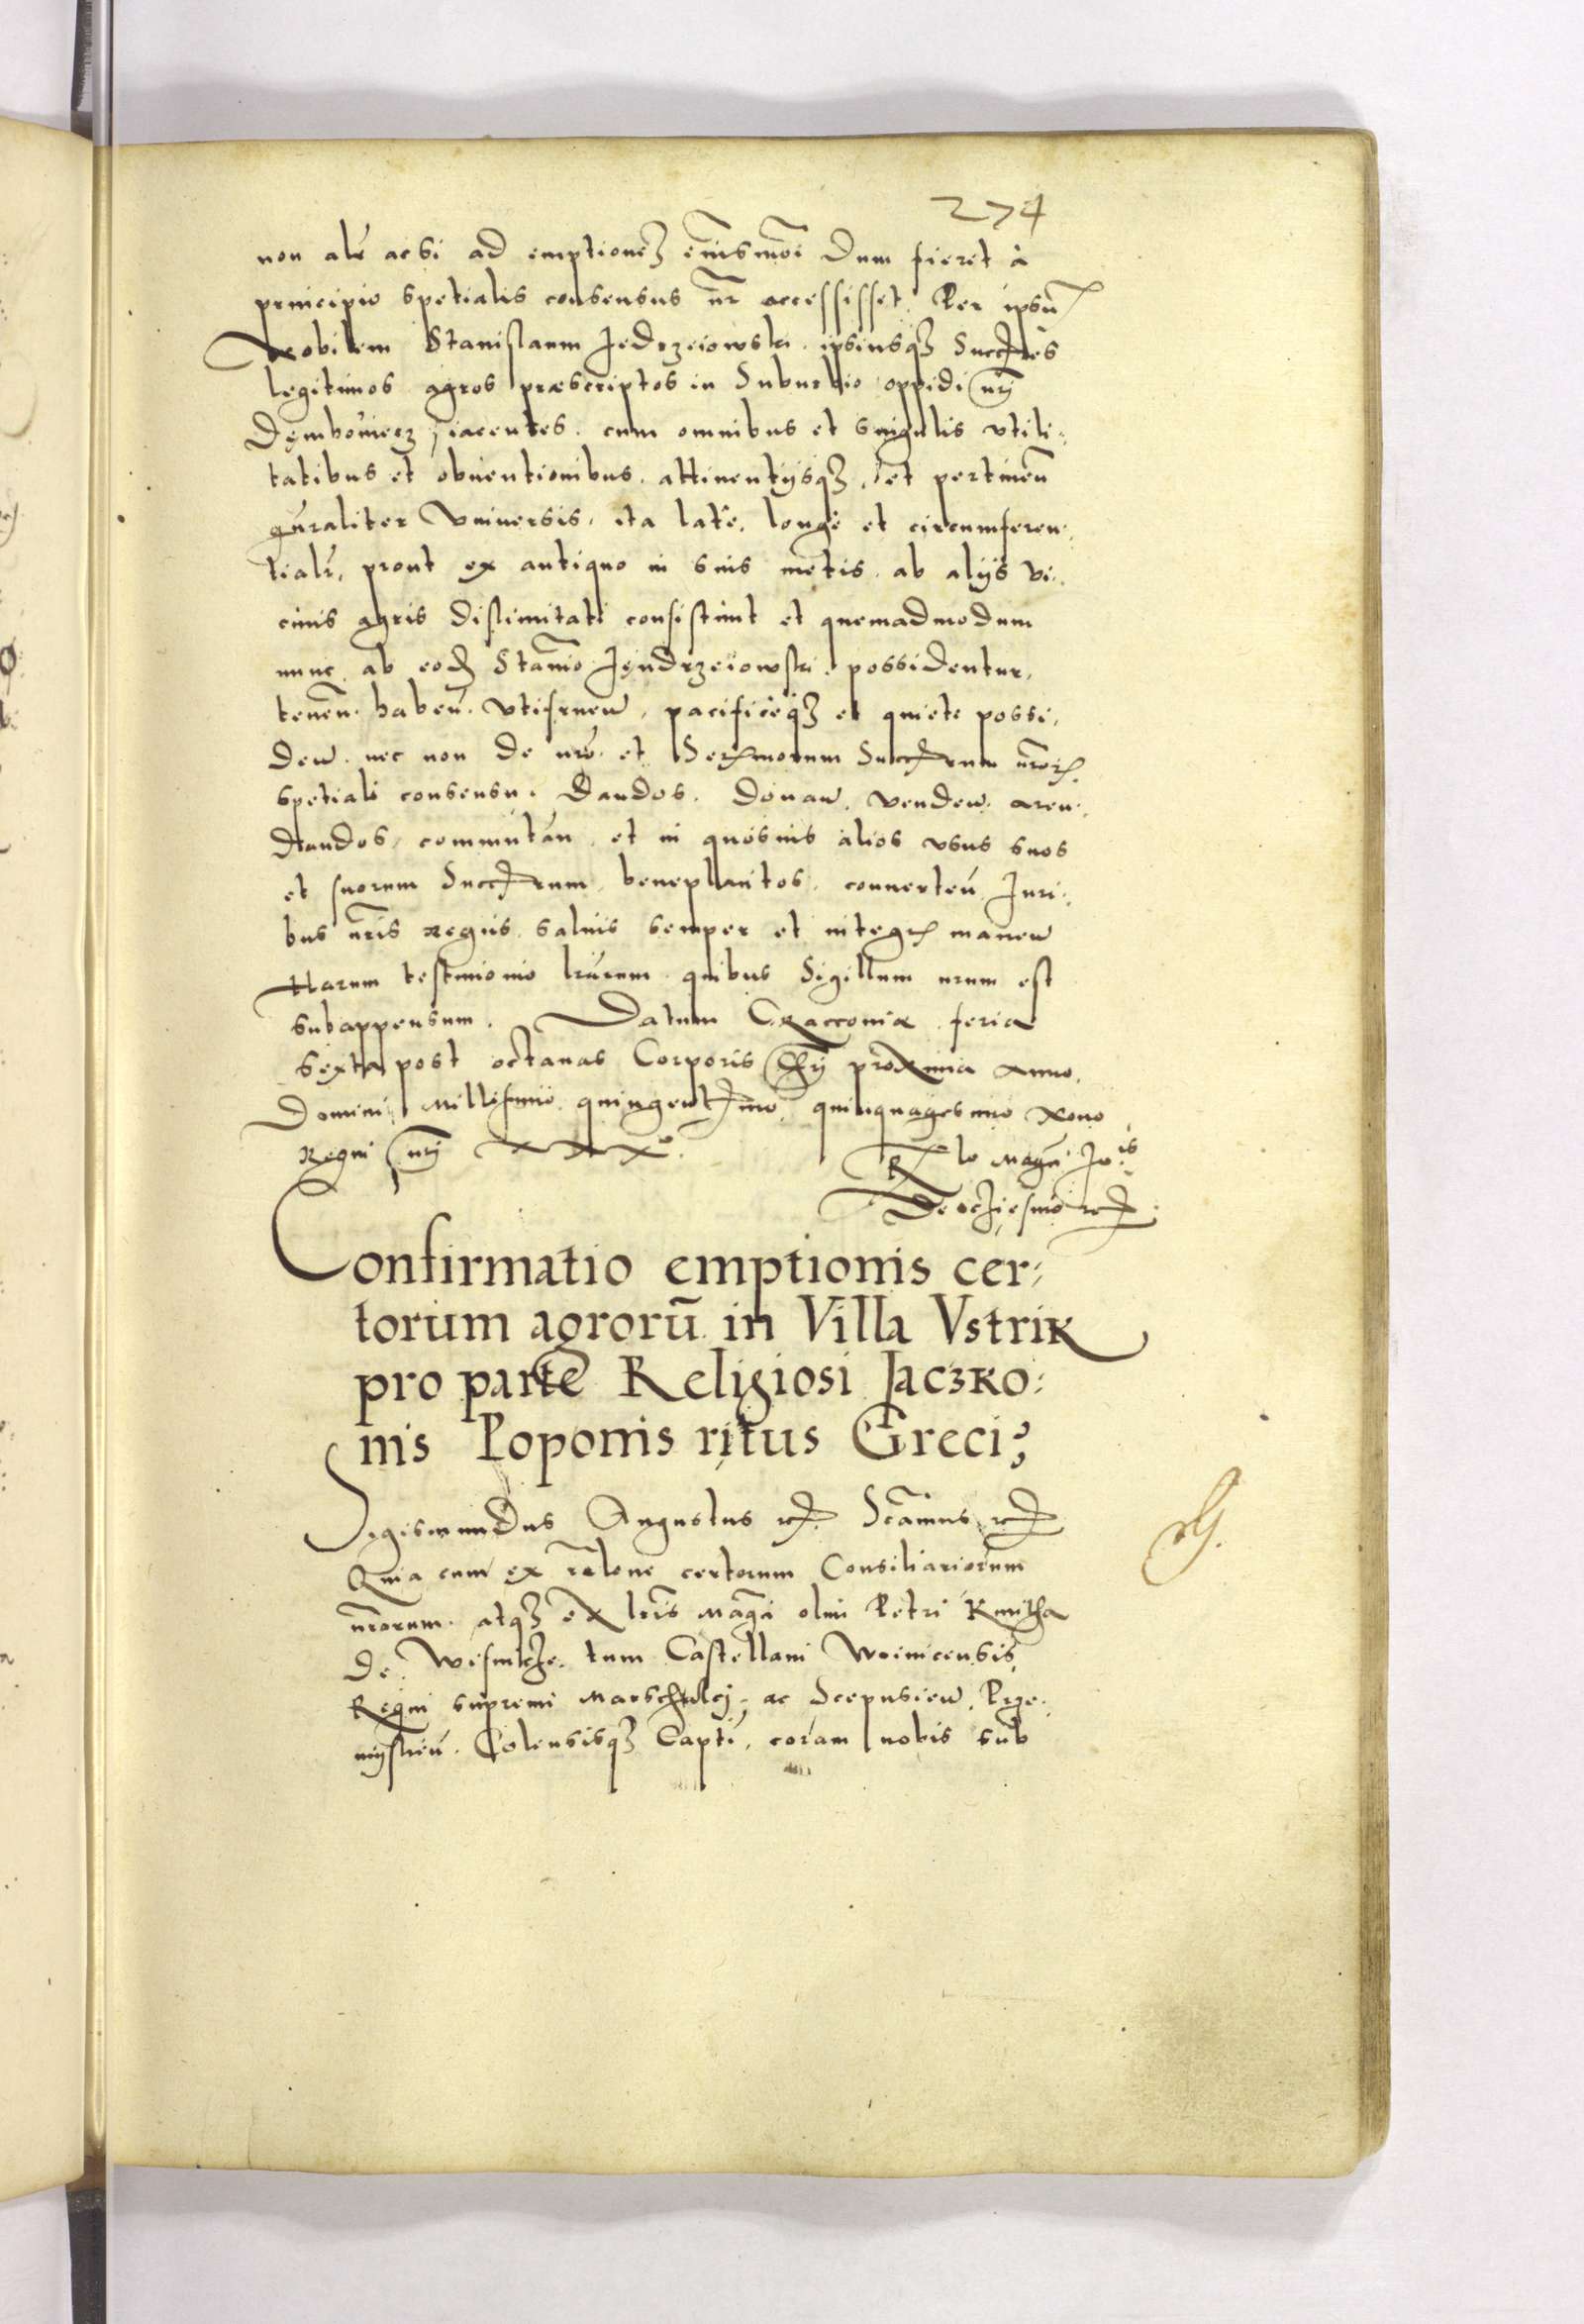 274
non alr̃ acsi ad emptionẽ eiusmõi dum fieret à
principio spetialis consensus nr̃ accessisset. Per ipsũ
Nobilem Stanislaum Jedrzeiowski. ipsiusq₃ Succes̃
legitimos agros præscriptos in Suburbio oppidi nr̃i
Dęmbowiecz, iacentes. cum omnibus et singulis vtili⸗
tatibus et obuentionibus. attinentijsq₃, et pertineñ
gñraliter Vniuersis, ita latè, longè et circumferen⸗
tialr̃, prout ex antiquo in suis metis. ab alijs vi⸗
cinis agris dislimitati consistunt et quemadmodum
nunc ab eod̃ Stanĩo Jęndrzeiowski possidentur,
teneñ. habeñ. Vtifrueñ, pacificeq₃ et quiete possi⸗
deñ. nec non de nrõ. et Serẽmorum Succrum nr̃or̃
spetiali consensu. Dandos. Donañ. vendeñ. aren⸗
dandos, commutañ, et in quosuis alios vsus suos
et suorum Succrum, beneplacitos, conuerteñ. Juri⸗
bus nr̃is regiis. saluis semper et integr̃ maneñ
Harum testimonio lr̃arum quibus Sigillum nrum est
subappensum. Datum Cracouiæ. feria
sexta post octauas Corporis Chrĩ proxima Anno.
Domini Millesimo quingentmo, quinquagesimo Nono
Regni nr̃i XXX°.
Rlo Magñ. Jo⸗is
De Ocziesino rc̃
Confirmatio emptionis cer⸗
torum agrorũ in Villa Vstrik
pro parte Religiosi Jaczko⸗
nis Poponis ritus Greci;
Sigismundus Augustus rc̃. Scãmus rc̃
Quia cum ex rãlone certorum Consiliariorum
nr̃orum. atq₃ ex lr̃is Magci olim Petri Kmitha
de Wisnicze. tum Castellani Woinicensis
Regni supremi Marschalcj, ac Scepusieñ. Prze⸗
mysleñ. Colensisq₃ Captĩ, coram nobis sub